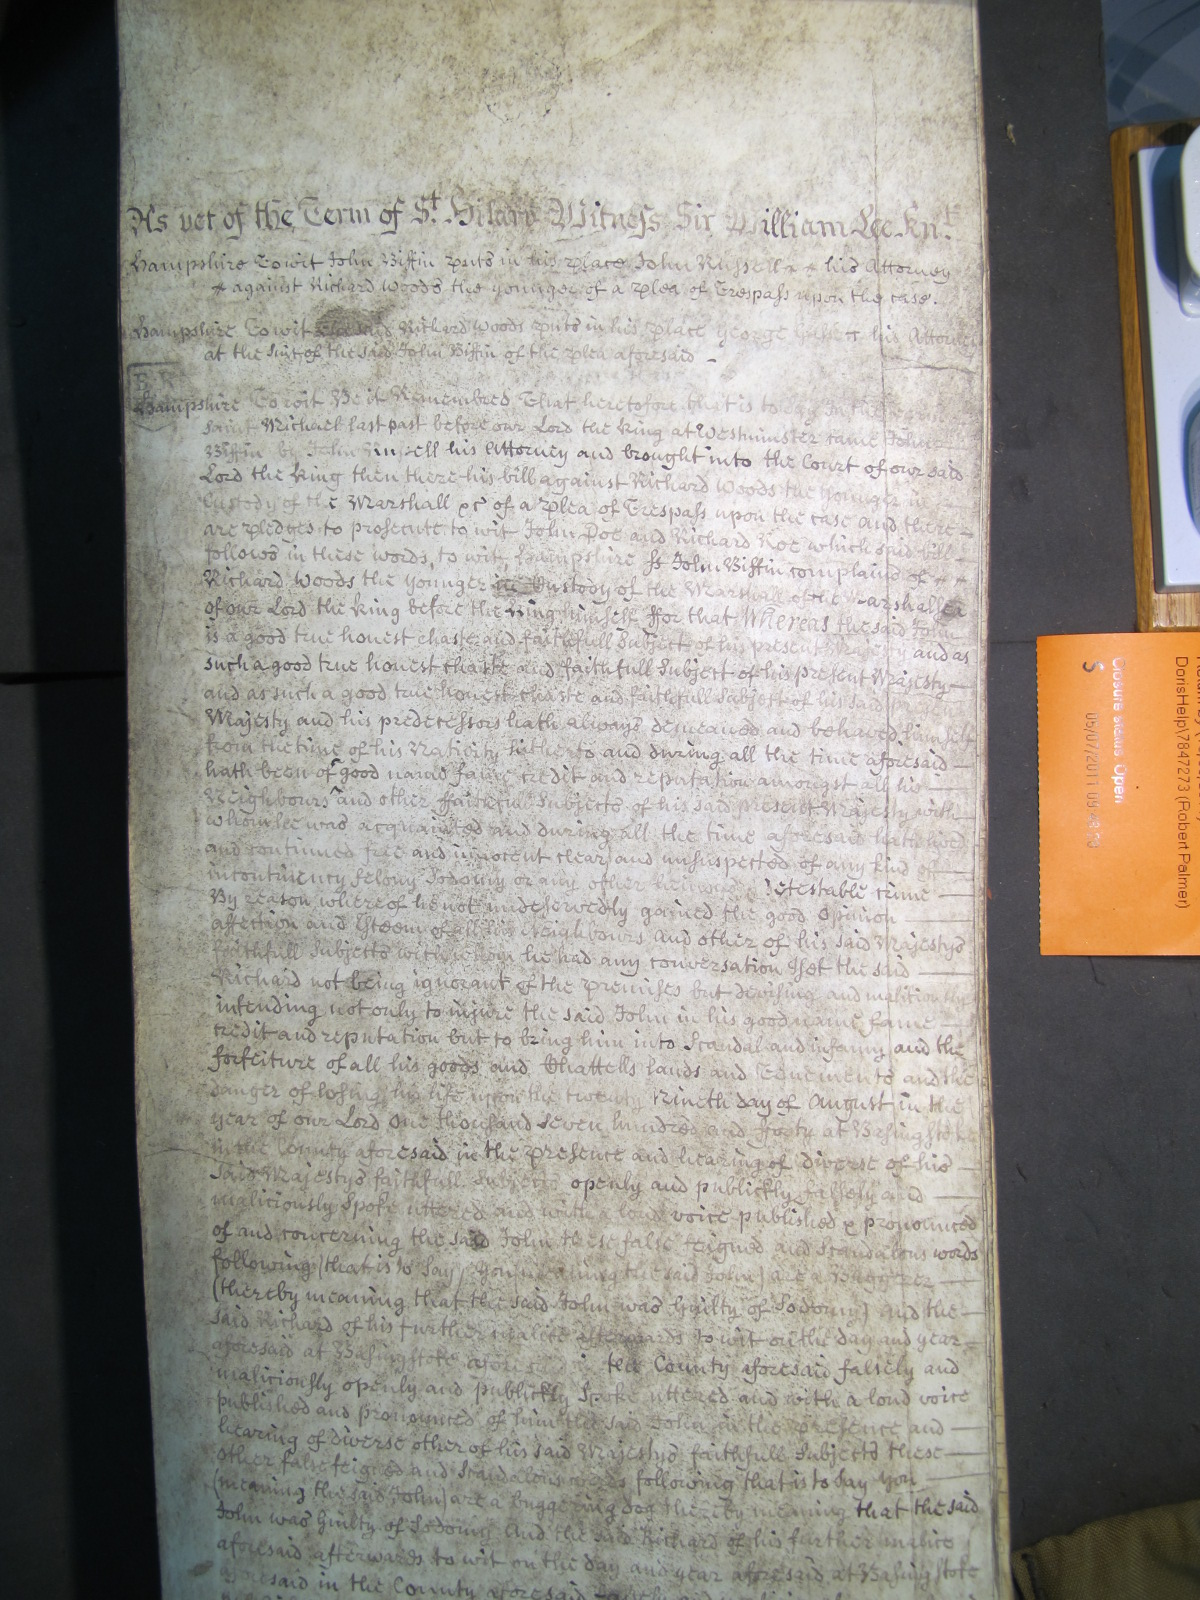 As yet of the Term of St. Hilary Witness Sir William Lee Knt.
Hampshire Towit John Biffin puts in his place John Russell his Attorney
against Richard Woods the younger of a plea of Trespass upon the case.
Hampshire Towit the said Richard Woods puts in his place George his Attorney
at the Suit of the said John Biffin of the plea aforesaid
Hampshire Towit Be it Remembred That heretofore that is to say In the Term
Saint Michael last past before our Lord the King at Westminster came John
Biffin by John his Attorney and brought into the Court of our said
Lord the King then there his bill against Richard Woods the younger in
Custody of the Marshall &c of a plea of Trespass upon the case and there
are pledges to prosecute to wit John Doe and Richard Roe which said bill
follows in these words, to wit, Hampshire ss John Biffin complains of
Richard Woods the younger in Custody of the Marshall of the Marshallsea
of our Lord the King before the King himself ffor that Whereas the said John
is a good true honest chaste and faithfull Subject of his present Majesty and as
such a good true honest chaste and faithfull Subject of his present Majesty
and as such a good true honest chaste and faithfull Subject of his said present
Majesty and his predecessors hath always demeaned and behaved himself
from the time of his Nativity hitherto and during all the time aforesaid
hath been of good name fame credit and reputation amongst all his
Neighbours and other ffaithfull Subjects of his said present Majesty with
whom he was acquainted and during all the time aforesaid hath lived
and continued free and innocent clear and unsuspected of any kind of
incontinency felony Sodomy or any other heinous detestable crime
By reason whereof he not undeservedly gained the good Opinion
affection and Esteem of all his Neighbours and other of his said Majestys
faithfull Subjects with whom he had any conversation Yet the said
Richard not being ignorant of the premises but devising and maliciously
intending not only to injure the said John in his good name fame
credit and reputation but to bring him into Scandal and infamy and the
forfeiture of all his goods and Chattells lands and Tenements and the
danger of losing his life upon the twenty Nineth day of August in the
year of our Lord One thousand Seven hundred and fforty at Basingstoke
in the County aforesaid in the presence and hearing of diverse of his
Said Majestys faithfull Subjects openly and publickly falsely and
maliciously Spoke uttered and with a loud voice published & pronounced
of and concerning the said John these false feigned and Scandalous words
following (that is to say) You (meaning the said John) are a Buggerer
(thereby meaning that the said John was Guilty of Sodomy) and the
said Richard of his further malice afterwards to wit on the day and year
aforesaid at Basingstoke aforesaid in the County aforesaid falsely and
maliciously openly and publickly Spoke uttered and with a loud voice
published and pronounced of him the said John in the presence and
hearing of diverse other of his said Majestys faithfull Subjects these
other false feigned and Scandalous words following that is to say You
(meaning the said John) are a buggering dog thereby meaning that the said
John was Guilty of Sodomy And the said Richard of his further malice
aforesaid afterwards to wit on the day and year aforesaid at Basingstoke
aforesaid in the County aforesaid
DorisHelp\7847273 (Robert Palmer)
Closure status Open
05/07/2011
S